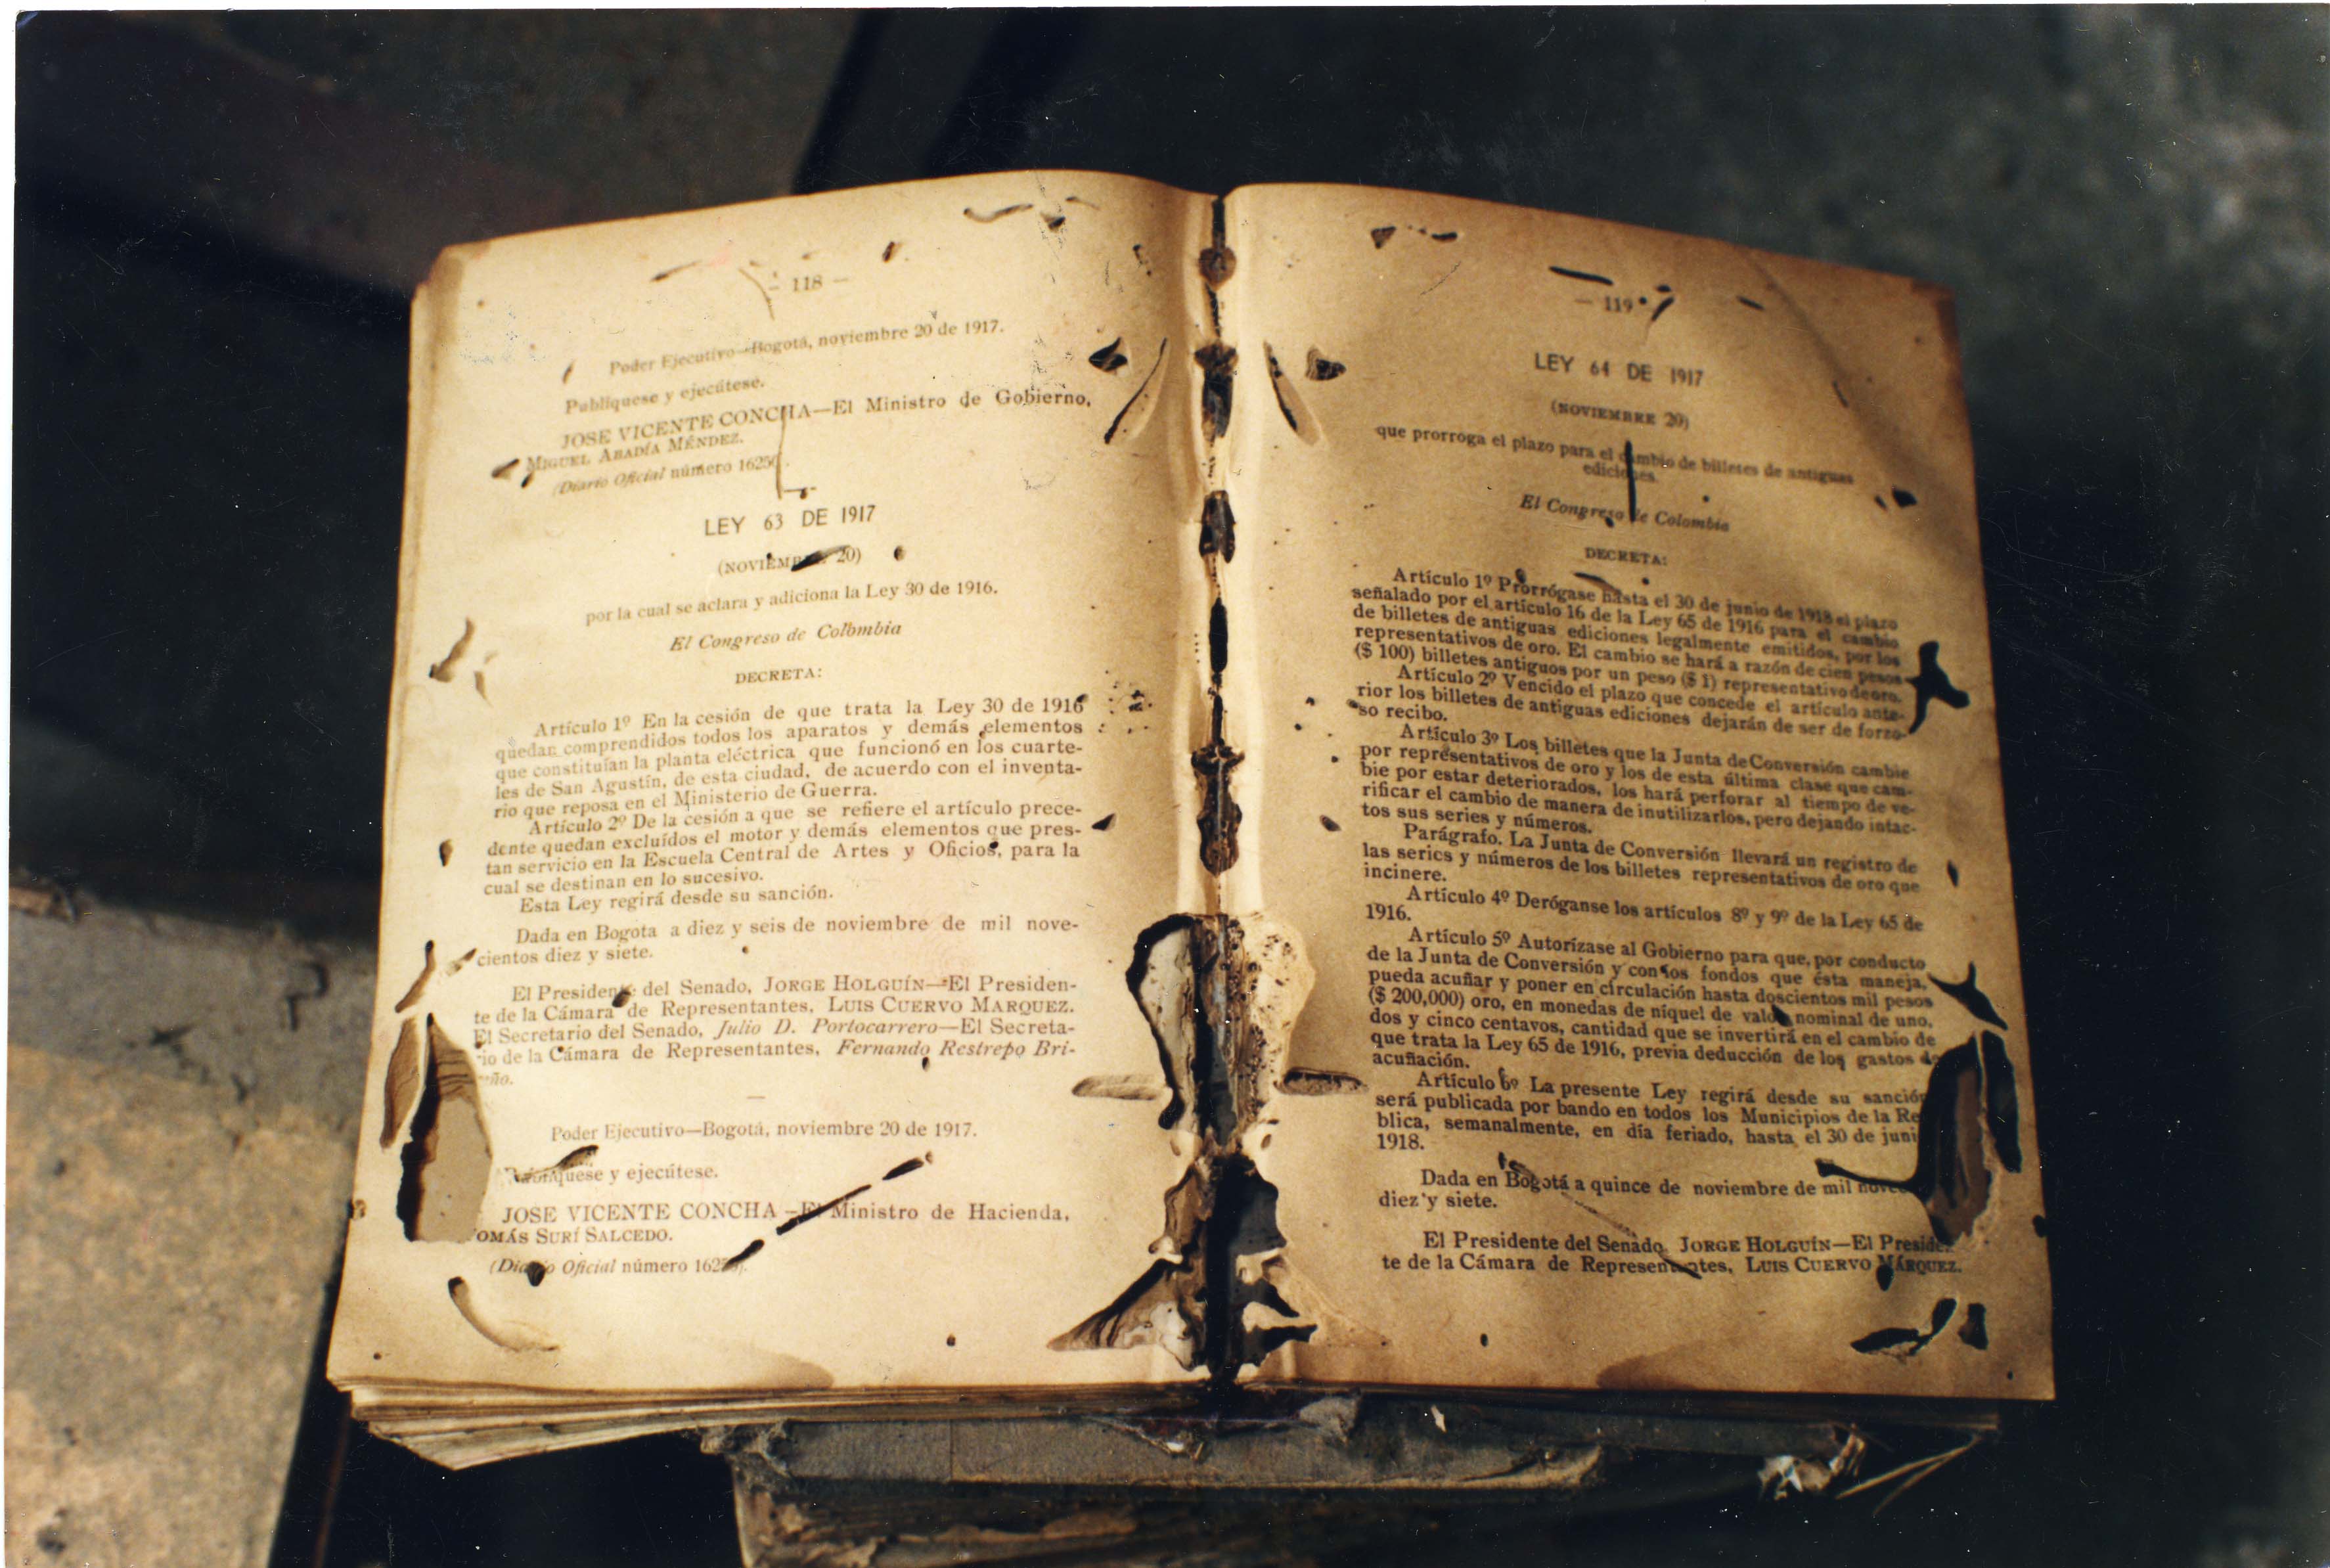 — 118 —
Poder Ejecutivo—Bogotá, noviembre 20 de 1917.
Publíquese y ejecútese.
JOSE VICENTE CONCHA—El Ministro de Gobierno,
MIGUEL ABADÍA MÉNDEZ.
(Diario Oficial número
LEY 63 DE 1917
(NOVIEMB 20)
por la cual se aclara y adiciona la Ley 30 de 1916.
El Congreso de Colombia
DECRETA:
Artículo 1º En la cesión de que trata la Ley 30 de 1916
quedan comprendidos todos los aparatos y demás elementos
que constituían la planta eléctrica que funcionó en los cuarte-
les de San Agustín, de esta ciudad, de acuerdo con el inventa-
rio que reposa en el Ministerio de Guerra.
Artículo 2º De la cesión a que se refiere el artículo prece-
dente quedan excluídos el motor y demás elementos que pres-
tan servicio en la Escuela Central de Artes y Oficios, para la
cual se destinan en lo sucesivo.
Esta Ley regirá desde su sanción.
Dada en Bogota a diez y seis de noviembre de mil nove-
cientos diez y siete.
El Presidente del Senado, JORGE HOLGUÍN—El Presiden-
te de la Cámara de Representantes, LUIS CUERVO MARQUEZ.
El Secretario del Senado, Julio D. Portocarrero—El Secreta-
rio de la Cámara de Representantes, Fernando Restrepo Bri-
ño.
—
Poder Ejecutivo—Bogotá, noviembre 20 de 1917.
Publíquese y ejecútese.
JOSE VICENTE CONCHA—El Ministro de Hacienda,
OMÁS SURÍ SALCEDO.
(Diario Oficial número
— 119
LEY 64 DE 1917
(NOVIEMBRE 20)
que prorroga el plazo para el cambio de billetes de antiguas
ediciones.
El Congreso de Colombia
DECRETA:
Artículo 1º Prorrógase hasta el 30 de junio de 1918 el plazo
señalado por el artículo 16 de la Ley 65 de 1916 para el cambio
de billetes de antiguas ediciones legalmente emitidos, por los
representativos de oro. El cambio se hará a razón de cien pesos
($ 100) billetes antiguos por un peso ($ 1) representativo de oro.
Artículo 2º Vencido el plazo que concede el artículo ante-
rior los billetes de antiguas ediciones dejarán de ser de forzo-
so recibo.
Artículo 3º Los billetes que la Junta de Conversión cambie
por representativos de oro y los de esta última clase que cam-
bie por estar deteriorados, los hará perforar al tiempo de ve-
rificar el cambio de manera de inutilizarlos, pero dejando intac-
tos sus series y números.
Parágrafo. La Junta de Conversión llevará un registro de
las series y números de los billetes representativos de oro que
incinere.
Artículo 4º Deróganse los artículos 8º y 9º de la Ley 65 de
1916.
Artículo 5º Autorízase al Gobierno para que, por conducto
de la Junta de Conversión y con los fondos que ésta maneja,
pueda acuñar y poner en circulación hasta doscientos mil pesos
($ 200,000) oro, en monedas de níquel de valor nominal de uno,
dos y cinco centavos, cantidad que se invertirá en el cambio de
que trata la Ley 65 de 1916, previa deducción de los gastos de
acuñación.
Artículo 6º La presente Ley regirá desde su sanción
será publicada por bando en todos los Municipios de la Re
blica, semanalmente, en día feriado, hasta el 30 de juni
1918.
Dada en Bogotá a quince de noviembre de mil nove
diez y siete.
El Presidente del Senado, JORGE HOLGUÍN—El Preside
te de la Cámara de Representantes, LUIS CUERVO MÁRQUEZ.